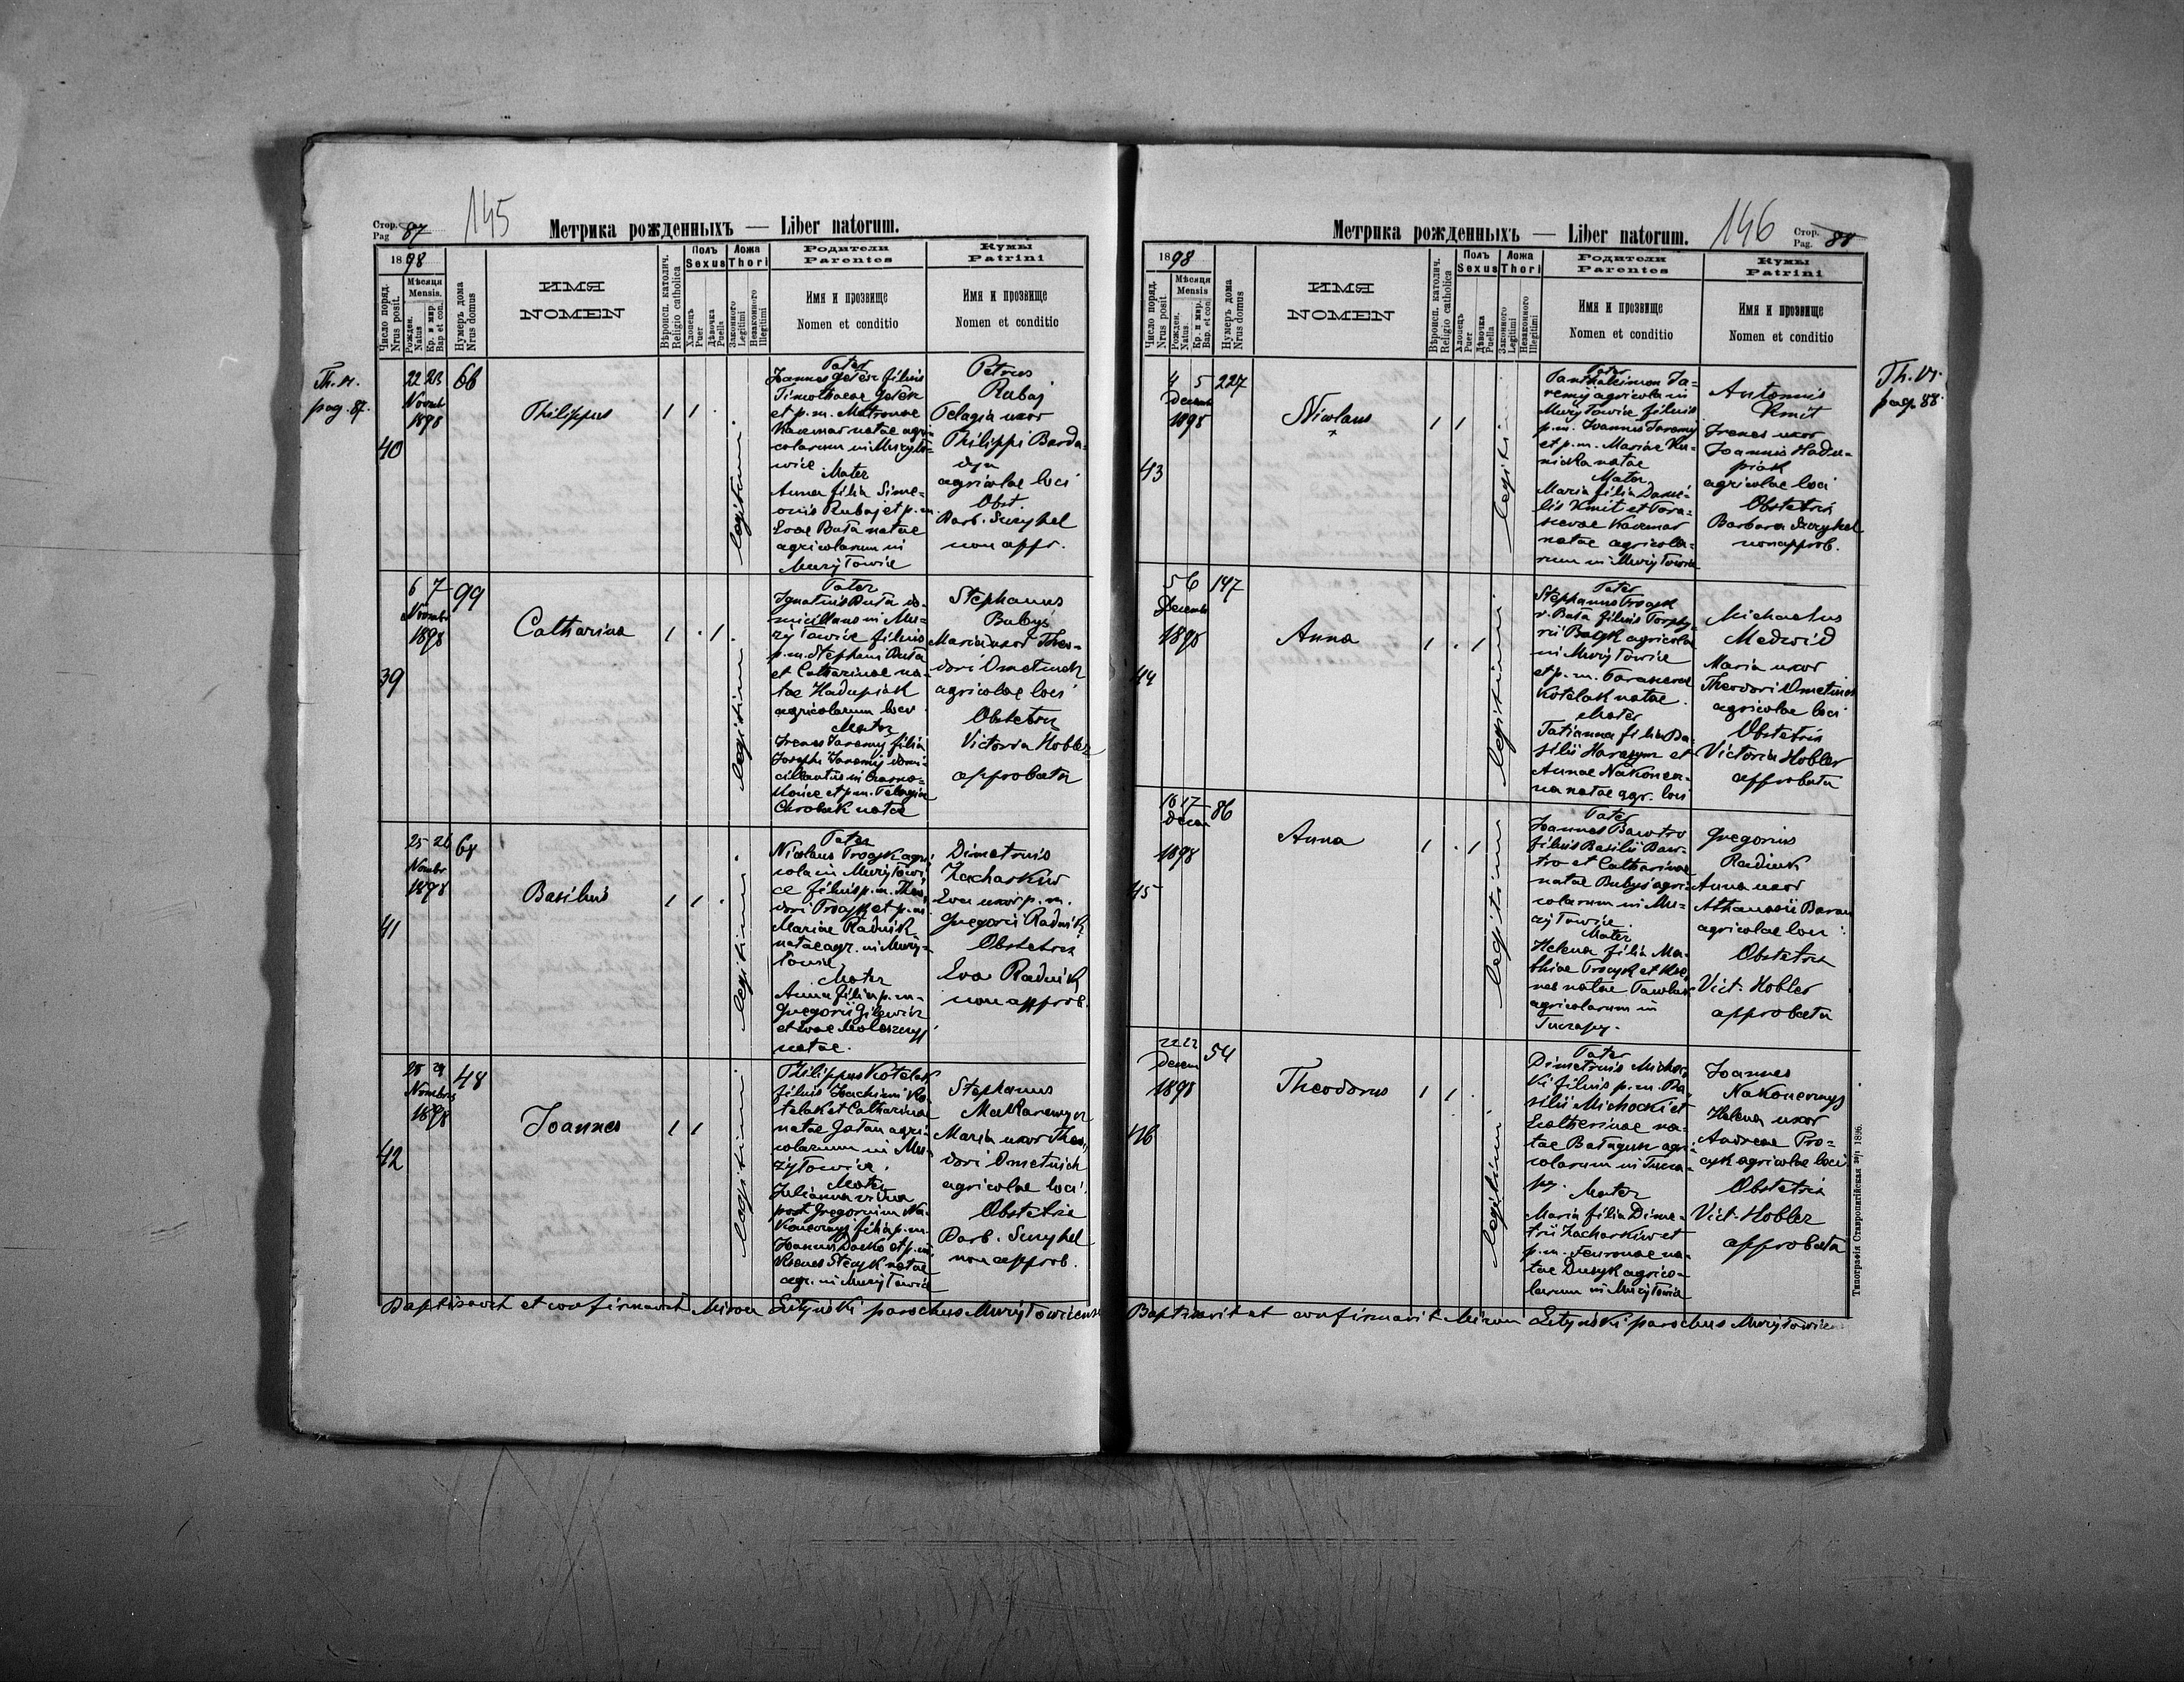 Стор.
Pag 87
145
Метрика рожденныхъ — Liber natorum.
1898
Число поряд.
Nrus posit.
Мѣсяця
Mensis.
Рожден.
Natus
Кр. и мир.
Bap et con.
Нумеръ дома
Nrus domus
ИМЯ
NOMEN
Вѣроисп. католич.
Religio catholica
Полъ
Sexus
Хлопець
Puer
Дѣвочка
Puella
Ложа
Thori
Законного
Legitimi
Незаконного
Illegitimi
Родители
Parentes
Имя и прозвище
Nomen et conditio
Кумы
Patrini
Имя и прозвище
Nomen et conditio
pag. 87.
40
22 23
Novemb
1898
66
Philippus
1 1 .
legitimi
Pater
Joannes filius
Timothaeae
et p. m. Matronae
natae agri
colarum in Muzyło=
wice
Mater
Anna filia Sime=
onis Rubaj et p. m.
Evae Buła natae
agricolarum in
Muzyłowice
Petrus
Rubaj
Pelagia uxor
Philippi Barda=
agricolae loci
Obst.
Barb. Smyhel
non appr.
39
6 7
Novembr
1898
99
Catharina
1 . 1
legitimi
Pater
Ignatius Buła do=
micilians in Mu=
zyłowice filius
p. m. Stephani Buła
et Catharinae na=
tae Hadupiak
agricolarum loci
Mater
Irenes Jaremy filia
Josephi Jaremy domi=
ciliantis in
et p. m. Pelagiae
Chrobak natae
Stephanus
Bubys
Maria uxor Theo=
dori Ometiuch
agricolae loci
Obstetrix
Victoria Hobler
approbata
41
25 26
Novembr
1898
68
Basilius
1 1 .
legitimi
Pater
Nicolaus Procyk agri=
cola in Muzyłowi=
ce filius p. m. Theo=
dori Procyk et p. m.
Mariae Radiuk
natae agr. in Muzy=
łowice
Mater
Anna filia p. m.
Gregorii Gilewicz
et Evae
natae.
Dimetrius
Zacharkiw
Eva uxor p. m.
Gregorii Radiuk
Obstetrix
Eva Radiuk
non approb.
42
28 29
Novembris
1898
48
Joannes
1 1
legitimi
Philippus Kotelak
filius Joachimi Ko=
telak et Catharinae
natae Gatan agri=
colarum in Mu=
zyłowice.
Mater
Julianna vidua
post Gregorium Na=
koneczny filia p. m.
Joannis et p. m.
natae
agr. in Muzyłowice
Stephanus
Makaremyn
Maria uxor Theo=
dori Ometiuch
agricolae loci
Obstetrix
Barb. Smyhel
non approb.
Baptisavit et confirmavit Miron Lityński parochus Muzyłowicensis
Метрика рожденныхъ — Liber natorum.
146
Стор.
Pag. 88
1898
Число поряд.
Nrus posit.
Мѣсяця
Mensis
Рожден.
Natus.
Кр. и мир.
Bap. et con.
Нумеръ дома
Nrus domus
ИМЯ
NOMEN
Вѣроисп. католич.
Religio catholica
Полъ
Sexus
Хлопець
Puer
Дѣвочка
Puella
Ложа
Thori
Законного
Legitimi
Незаконного
Illegitimi
Родители
Parentes
Имя и прозвище
Nomen et conditio
Кумы
Patrini
Имя и прозвище
Nomen et conditio
Th. VI.
pag. 88.
43
4 5
Decemb
1898
227
Nicolaus
1 1
legitimi
Pater
Panthaleimon Ja=
remij agricola in
Muzyłowice filius
p. m. Joannis Jaremij
et p. m. Mariae
natae
Mater
Maria filia Dani=
lis Kmit et Para=
scevae
natae agricola=
rum in Muzyłowice
Antonius
Kmit
Irenes uxor
Joannis Hadu=
piak
agricolae loci
Obstetrix
Barbara Smyhel
non approb.
44
5 6
Decemb
1898
147
Anna
1 . 1
legitimi
Pater
Stephanus Procyk
v. Buła filius Porphy=
rii agricola
in Muzyłowice
et p. m. Parascevae
Kotelak natae.
Mater
Tatianna filia Ba=
silii Harasym et
Annae Nakonecz=
na natae agr. loci
Michaelus
Medwid
Maria uxor
Theodori Ometiuch
agricolae loci
Obstetrix
Victoria Hobler
approbata
45
16 17
Decem
1898
86
Anna
1 . 1
legitimi
Pater
Joannes Bawtro
filius Basilii Baw=
tro et Catharinae
natae Bubys agri=
colarum in Mu=
zyłowice.
Mater
Helena filia Ma=
thiae Procyk et
natae Pawlak
agricolarum in
Tuczapy.
Gregorius
Radiuk
Anna uxor
Athanasii Baran
agricolae loci
Obstetrix
Vict. Hobler
approbata
46
22 22
Decem
1898
54
Theodorus
1 1 .
legitimi
Pater
Dimetrius Michoc=
ki filius p. m. Ba=
silii Michocki et
Catherinae na=
tae agri=
colarum in Tucza=
py.
Mater
Maria filia Dime=
trii Zacharkiw et
p. m. na=
tae agrico=
larum in Muzyłowice
Joannes
Nakoneczny
Helena uxor
Andreae Pro=
cyk agricolae loci
Obstetrix
Vict. Hobler
approbata
Baptisavit et confirmavit Miron Lityński parochus Muzyłowice
Типографія Ставропигійская 1896.